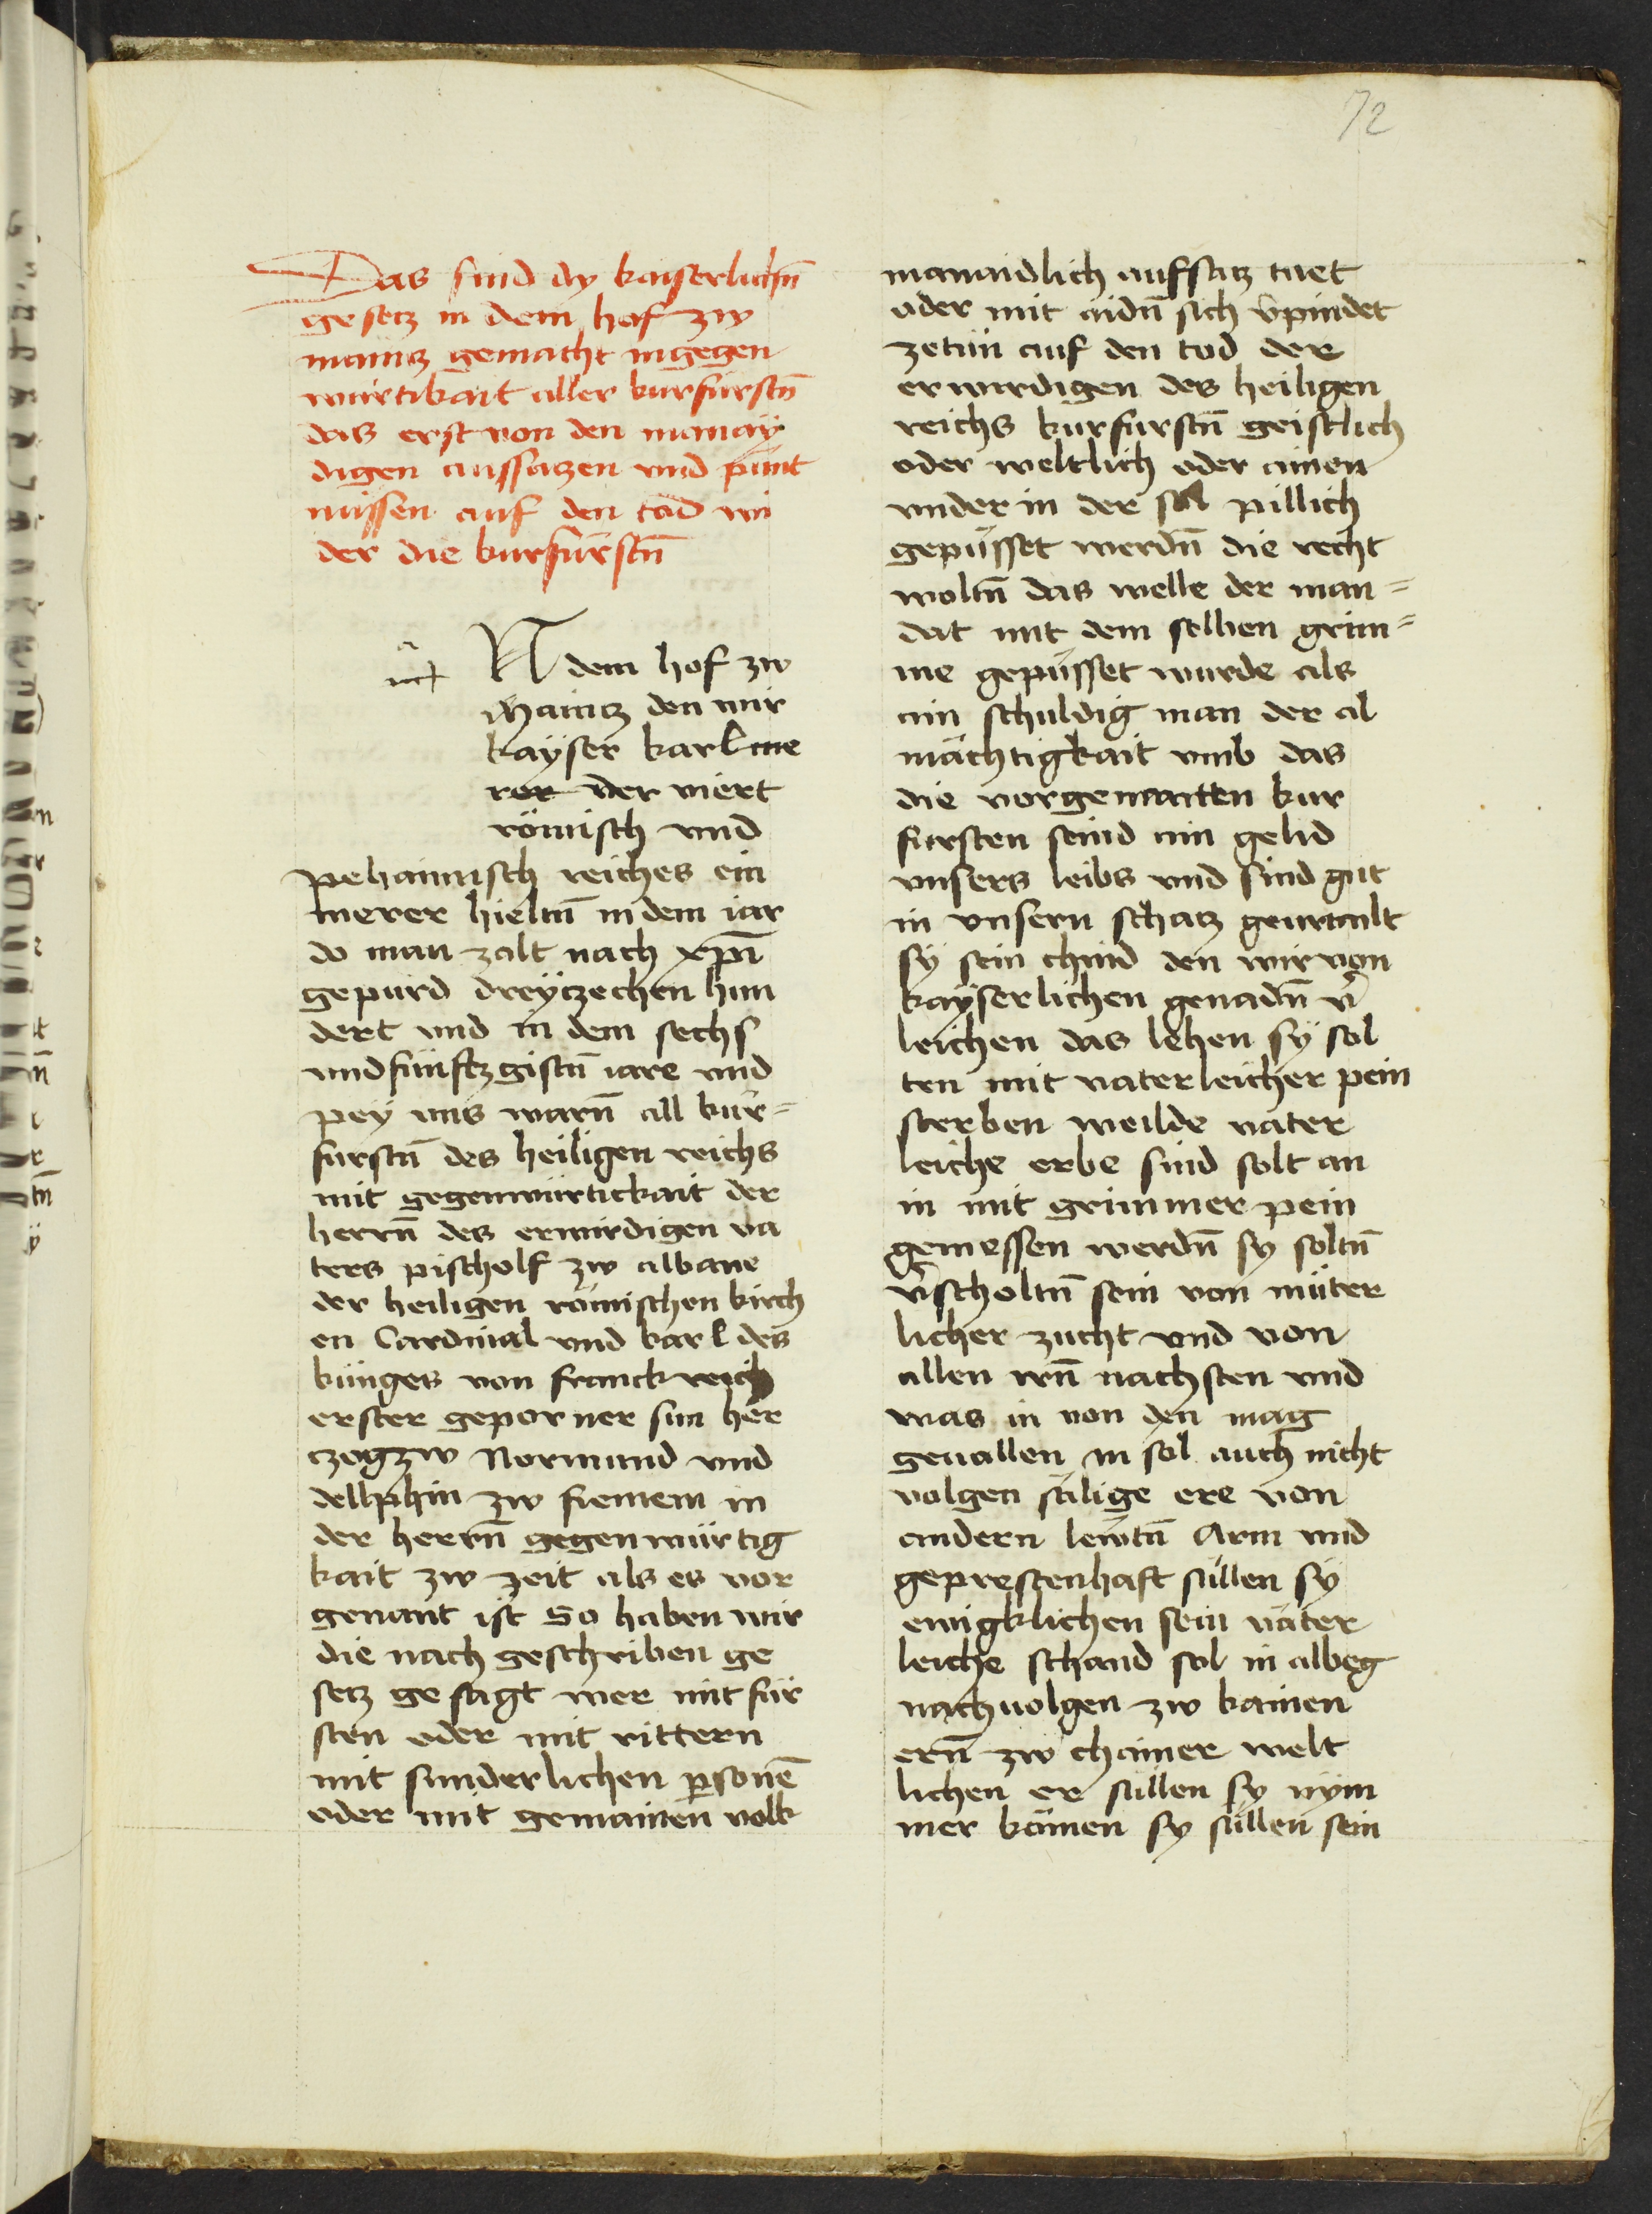 72
Das sind dy kaiserlichn̄
gesetz in dem hof zw
maintz gemacht ingegen
würtikait aller kurfürstn̄
das erst von den manay
digen aufsatzen vnd punt
nüssen auf den tod wi
der die kurfürstn̄
N dem hof zw
Maintz den wir
kayser karl me
rer der viert
römisch vnd
pehaimisch reiches ein
merer hieltn̄ in dem iar
do man zalt nach xp̄i
gepurd dreytzechen hun
dert vnd in dem sechs
vndfünftzgistn̄ iare vnd
pey vns warn̄ all kur=
furstn̄ des heiligen reichs
mit gegenwürtickait der
herrn̄ des erwirdigen va
ters pischolf zw albane
der heiligen römischen kirch
en Cardinal vnd karl des
künges von franckreich
erster geporner sun her
czog zw Normand vnd
dellphin zw
der herrn̄ gegenwürtig
kait zw zeit als es vor
genant ist So haben wir
die nach geschriben ge
setz gesagt wer mit für
sten oder mit rittern
mit sunderlichen ꝑsonē
oder mit gemainen volk
manaidlich aufsatz tuet
oder mit aidn̄ sich v̄pindet
zetün auf den tod der
erwirdigen des heiligen
reichs kurfurstn̄ geistlich
oder weltlich oder ainen
vnder in der sol pillich
gepüsset werdn̄ die recht
woltn̄ das welle der man=
dat mit dem selben grim=
me gepüsset wurde als
ain schuldig man der al
mächtigkait vmb das
die vorgenantten kur
fursten seind ain gelid
vnsers leibs vnd sind gut
in vnsern schatz
sy sein chind den wir von
kayserlichen genadn̄ v̄
leichen das lehen sy sol
ten mit vaterleicher pein
sterben weilde väter
leiche erbe sind solt an
in mit grimmer pein
gemessen werdn̄ sy soltn̄
v̄scholtn̄ sein von müter
licher zucht vnd von
allen irn̄ nachsten vnd
was in von den mag
geuallen in sol auch nicht
volgen sälige ere von
andern lewtn̄ Arm vnd
geprestenhaft süllen sy
ewigklichen sein väter
leiche schand sol in albeg
nachuolgen zw kainen
ern̄ zw chainer welt
lichen er süllen sy nym
mer kömen sy süllen sein